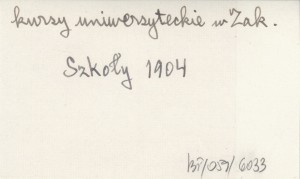 kursy uniwersyteckie w Zak.
Szkoły 1904
BP/059/6033